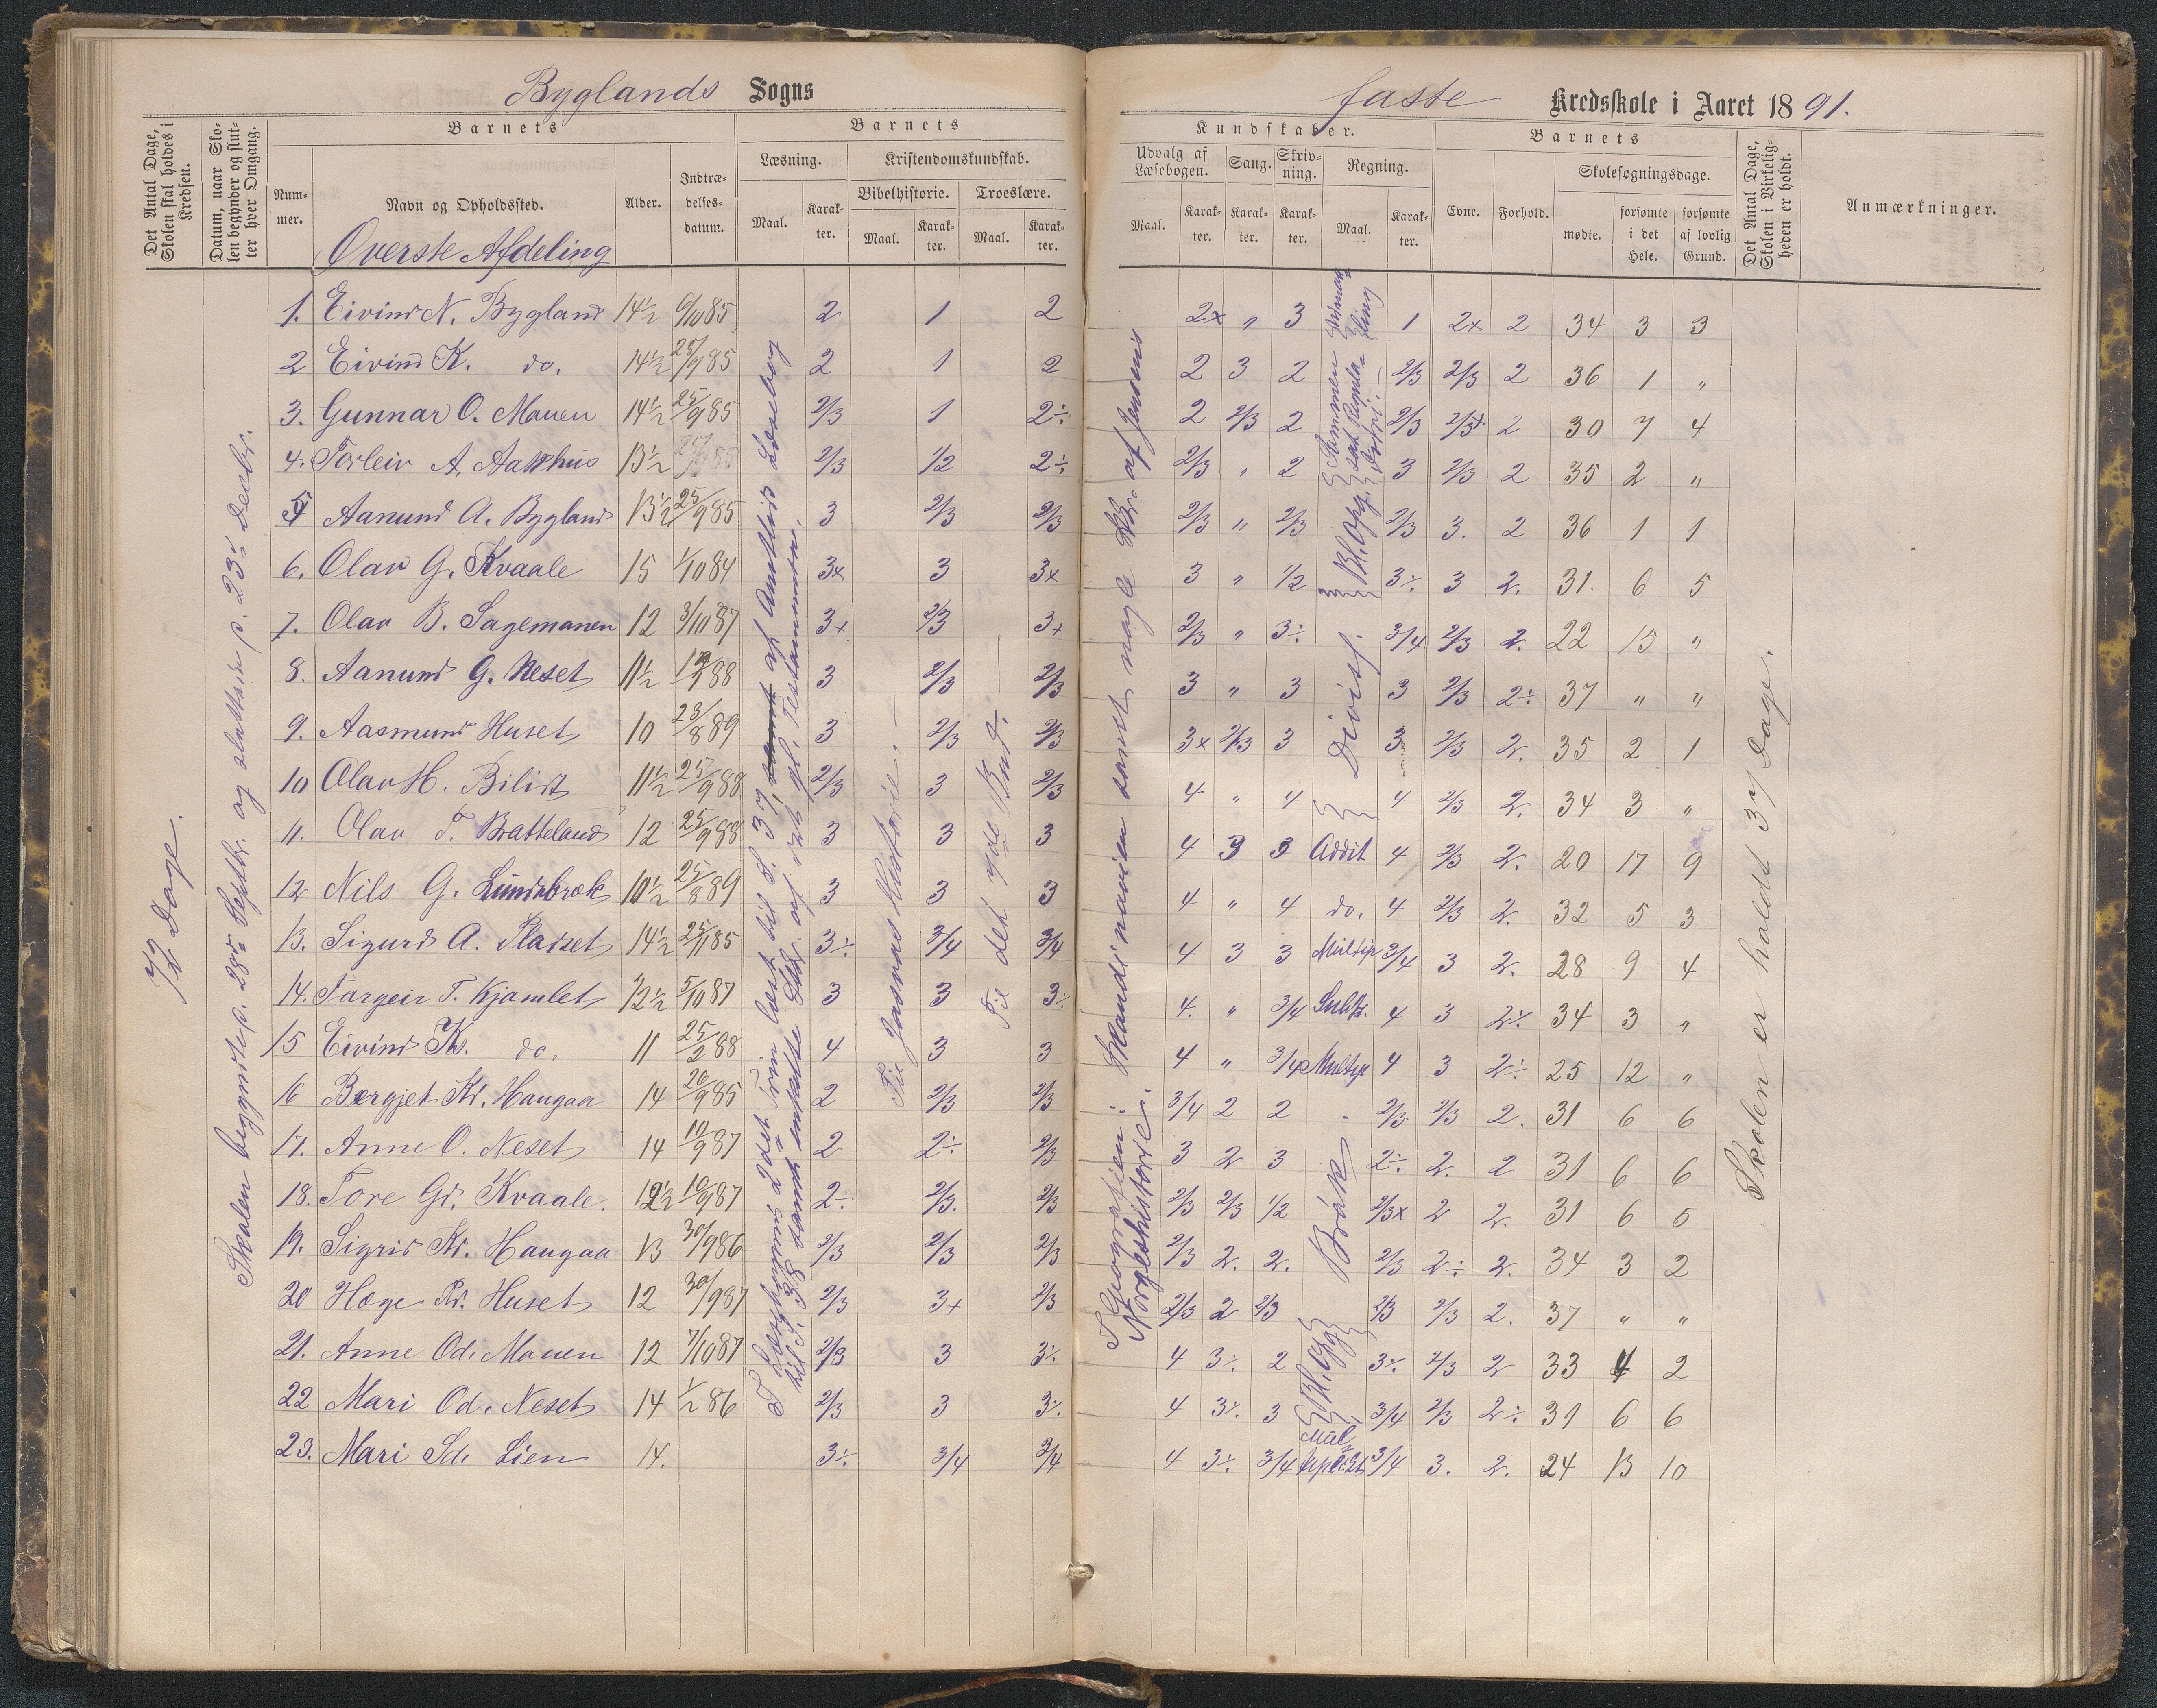 Byglands Sogns
faste Kredsskole i Aaret 1891.
Det Antal Dage, Skolen skal holdes i Kredsen.
Datum, naar Skolen begynder og slutter hver Omgang.
Barnets
Nummer.
Navn og Opholdssted.
Alder.
Indtrædelsesdatum.
Barnets
Læsning.
Maal.
Karakter.
Kristendomskundskab.
Bibelhistorie.
Maal.
Karakter.
Troeslære.
Maal.
Karakter.
Kundskaber.
Udvalg af Læsebogen.
Maal.
Karakter.
Sang.
Karakter.
Skrivning.
Karakter.
Regning.
Maal.
Karakter.
Barnets
Evne.
Forhold.
Skolesøgningsdage.
mødte.
forsømte i det Hele.
forsømte af lovlig Grund.
Det Antal Dage, Skolen i Virkeligheden er holdt.
Anmærkninger.
Øverste Afdeling
1. Eivind N. Bygland 14½ 6/10 85 2 1 2 2x " 3 1 2x 2 34 3 3
2 Eivind K. do. 14½ 25/9 85 2 1 2 2 3 2 2/3 2/3 2 36 1 "
3. Gunnar O. Mauen 14½ 25/9 85 2/3 1 2÷ 2 2/3 2 2/3 2/3x 2 30 7 4
4. Torleiv A. 13½ 2/3 1/2 2÷ 2/3 " 2 3 2/3 2 35 2 "
5 Aanund A. Bygland 13½ 25/9 85 3 2/3 2/3 2/3 " 2/3 2/3 3. 2 36 1 1
6. Olav G. Kvaale 15 1/10 84 3x 3 3x 3 " 1/2 3÷ 3 2. 31. 6 5
7. Olav B. Sagemauen 12 3/10 87 3+ 2/3 3+ 2/3 " 3÷ 3/4 2/3 2. 22 15 "
8. Aanund G. Neset 11½ 88 3 2/3 2/3 3 " 3 3 2/3 2÷ 37 " "
9. Aasmund Huset 10 23/8 89 3 2/3 2/3 3x 2/3 3 3 2/3 2. 35 2 1
10 Olav H. Bilist 11½ 25/9 88 2/3 3 2/3 4 " 4 4 2/3 2. 34 3 "
11. Olav T. Bratteland 12 25/9 88 3 3 3 4 3 3 Addit 4 2/3 2. 20 17 9
12 Nils G. 10½ 25/8 89 3 3 3 4 " 4 do. 4 2/3 2. 32 5 3
13. Sigurd A. 14½ 25/11 85 3÷ 3/4 3/4 4 3 3 Multip 3/4 3 2. 28 9 4
14. Targeir T. Kjamlet 12½ 5/10 87 3 3 3÷ 4. " 3/4 Subtr. 4 3 2÷ 34 3 "
15 Eivind K. do. 11 25/2 88 4 3 3 4 " 3/4 Multip 4 3 2÷ 25 12 "
16 Bergjet Kd. Haugaa 14 20/9 85 2 2/3 2/3 3/4 2 2 2/3 2/3 2. 31 6 6
17. Anne O. Neset 14 10/9 87 2 2÷ 2/3 3 2 3 2÷ 2. 2 31 6 6
18. Tore Gd. Kvaale. 12½ 10/9 87 2÷ 2/3. 2/3 2/3 2/3 1/2 2/3x 2 2. 31 6 5
19. Sigrid Kd. Haugaa 13 30/9 86 2/3 2/3 2/3 2/3 2. 2. 2/3 2÷ 2. 34 3 2
20 Høge Huset 12 30/9 87 2/3 3+ 2/3 2/3 2 2/3 2/3 2/3 2. 37 " "
21. Anne Od. Mauen 12 7/10 87 2/3 3 3÷ 4 3÷ 2 3÷ 2/3 2 33 4 2
22 Mari Od. Neset 14 86 2/3 3 3÷ 4 3÷ 3 3/4 2/3 2÷ 31 6 6
23. Mari Sd. Lien 14. 3÷ 3/4 3/4 4 3÷ 3/4 3/4 3. 2. 24 13 10
72 Dage.
Skolen begyndte p. 28de Septbr. og sluttede p. 23de Decbr.
2det Trin læst til S. 37, samt af Læsebog
til S. 38 samt enkelte Stkr. af det gl. Testamente.
Til Josvas Historie. —
Til det 7de Bud. —
I Geografien: Skandinavien samt nogle Stkr. af Jensens
Norgeshistorie.
Divis.
Brøk
Bl. Opg.
Bl. Opg.
Skolen er holdt 37 Dage.